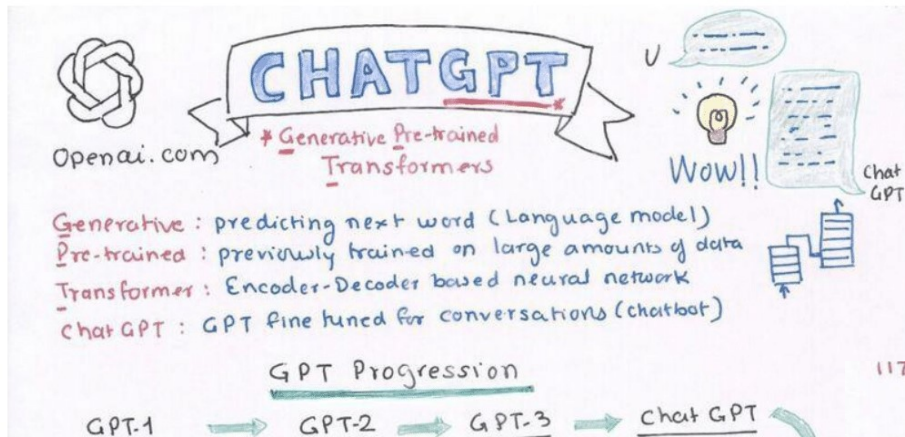 CHATGPT*
* Generative Pre-trained
Transformers
Openai.com
U
Wow!!
Chat
GPT
Generative : predicting next word (Language model)
Pre-trained : previously trained on large amounts of data
Transformer : Encoder-Decoder based neural network
Chat GPT : GPT fine tuned for conversations (chatbot)
GPT Progression
117
GPT-1 → GPT-2 → GPT-3 → Chat GPT